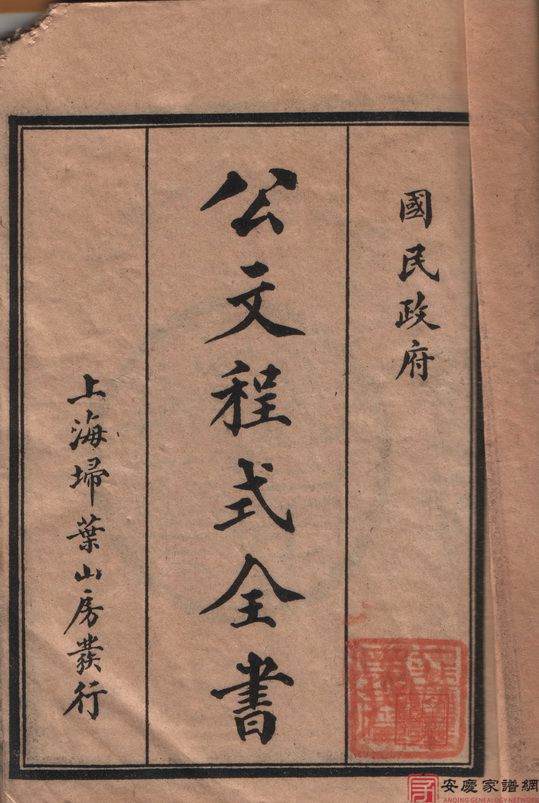 國民政府
公文程式全書
上海埽葉山房發行
安慶家譜網
ANQING GENEALOGY NETWORK